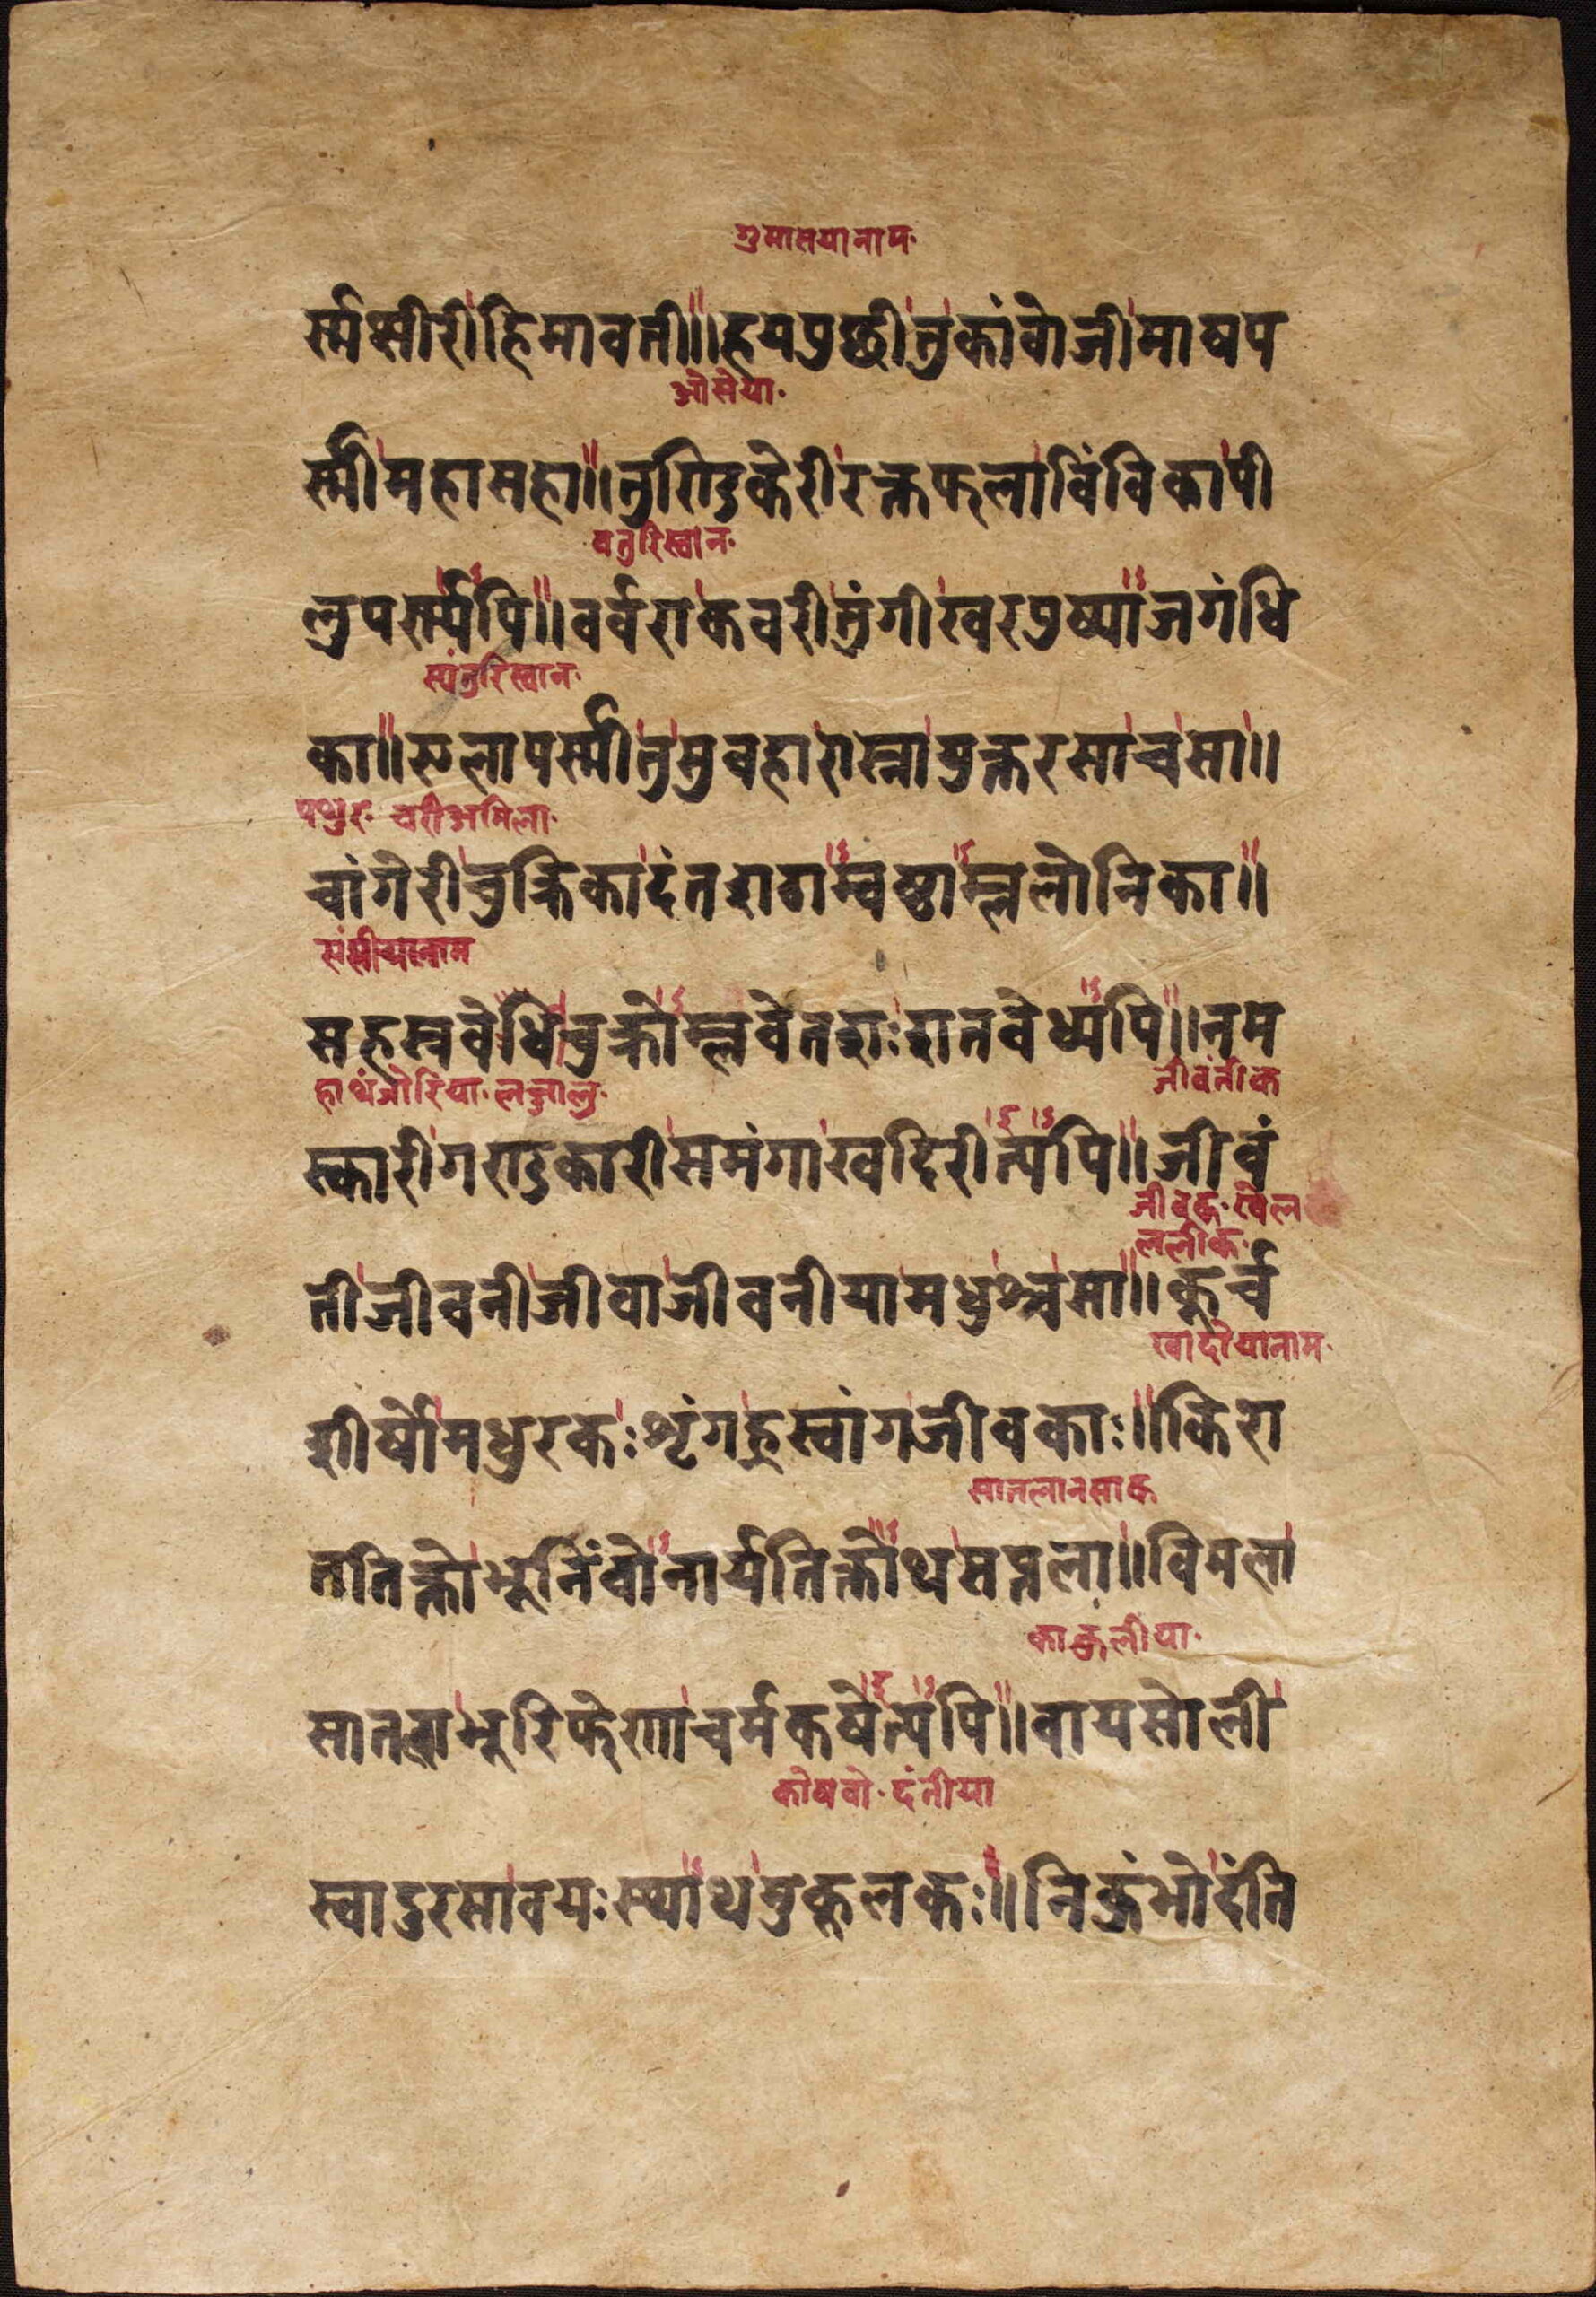 गुमासयानाम·
र्स्मक्षीरीहिमावती॥हयपुछीतुकांवोजीमाषप
ओसेया·
र्स्मीमहासहा॥तुण्डिकेरीरक्तफलाविंविकापी
वतुरिस्वान·
लुपर्स्म्यपि॥वर्वराकवरीतुंगीखरपुष्पाजगंधि
स्यंतुरिस्वान·
का॥एलापर्स्मीतुसुवहारास्नायुक्तरसाचसा॥
पथुरु· चरीअमिला·
चांगेरीचुक्रिकादंतशठाम्वष्ठाम्ललोनिका॥
सहस्रवेधिचुक्रोम्लवेतशःशतवेध्यपि॥नम
हाथंजोरिया·लज्जालु· जीवंतीक
स्कारीगण्डकारीसमंगाखदिरीत्यपि॥जीवं
जीवक·खेल
ललीक·
तीजीवनीजीवाजीवनीयामधुश्चसा॥कूर्च
खादीयानाम·
शीर्षोमधुरकःशृंगह्रस्वांगजीवकाः॥किरा
सातलानसाक
ततिक्तोभूनिंवोनार्यतिक्तोथसप्तला॥विमला
काकुलीया·
सातलाभूरिफेणाचर्मकषेत्यपि॥वायसोली
कोषवो·दंतीया
स्वादुरसावयःस्थाथमुकूलकः॥निकुंभोदंति